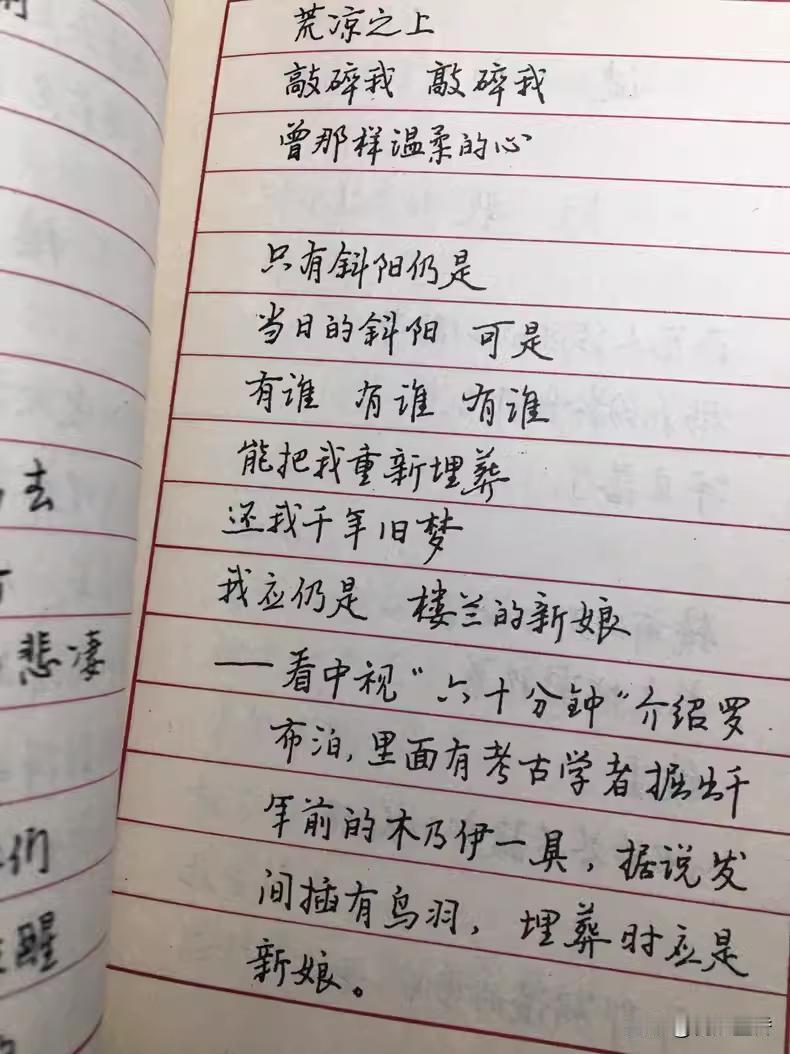 荒凉之上
敲碎我 敲碎我
曾那样温柔的心
只有斜阳仍是
当日的斜阳 可是
有谁 有谁 有谁
能把我重新埋葬
还我千年旧梦
我应仍是 楼兰的新娘
——看中视“六十分钟”介绍罗
布泊,里面有考古学者掘出千
年前的木乃伊一具,据说发
间插有鸟羽,埋葬时应是
新娘。
去
悲凄
们
醒